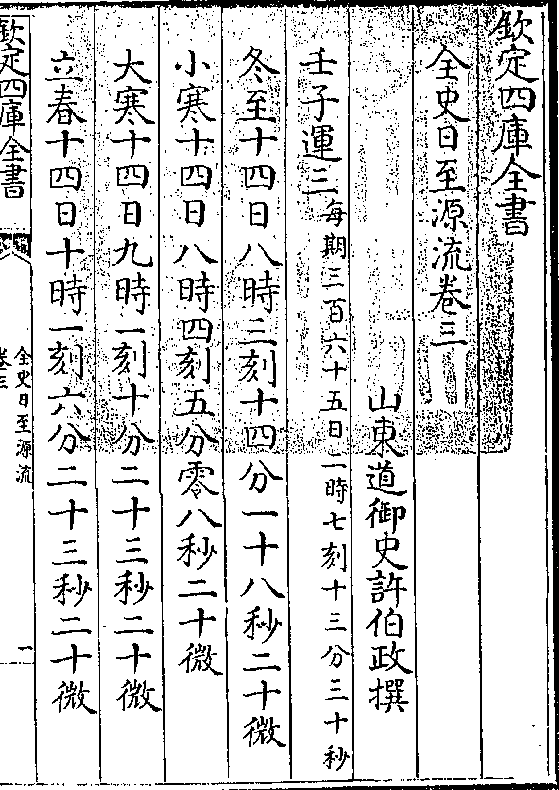 欽定四庫全書
全史日至源流卷三
山東道御史許伯政撰
壬子運三每期三百六十五日二時七刻十三分三十秒
冬至十四日八時三刻十四分一十八秒二十微
小寒十四日八時四刻五分零八秒二十微
大寒十四日九時一刻十分二十三秒二十微
立春十四日十時一刻六分二十三秒二十微
欽定四庫全書
全史日至源流
卷三
一